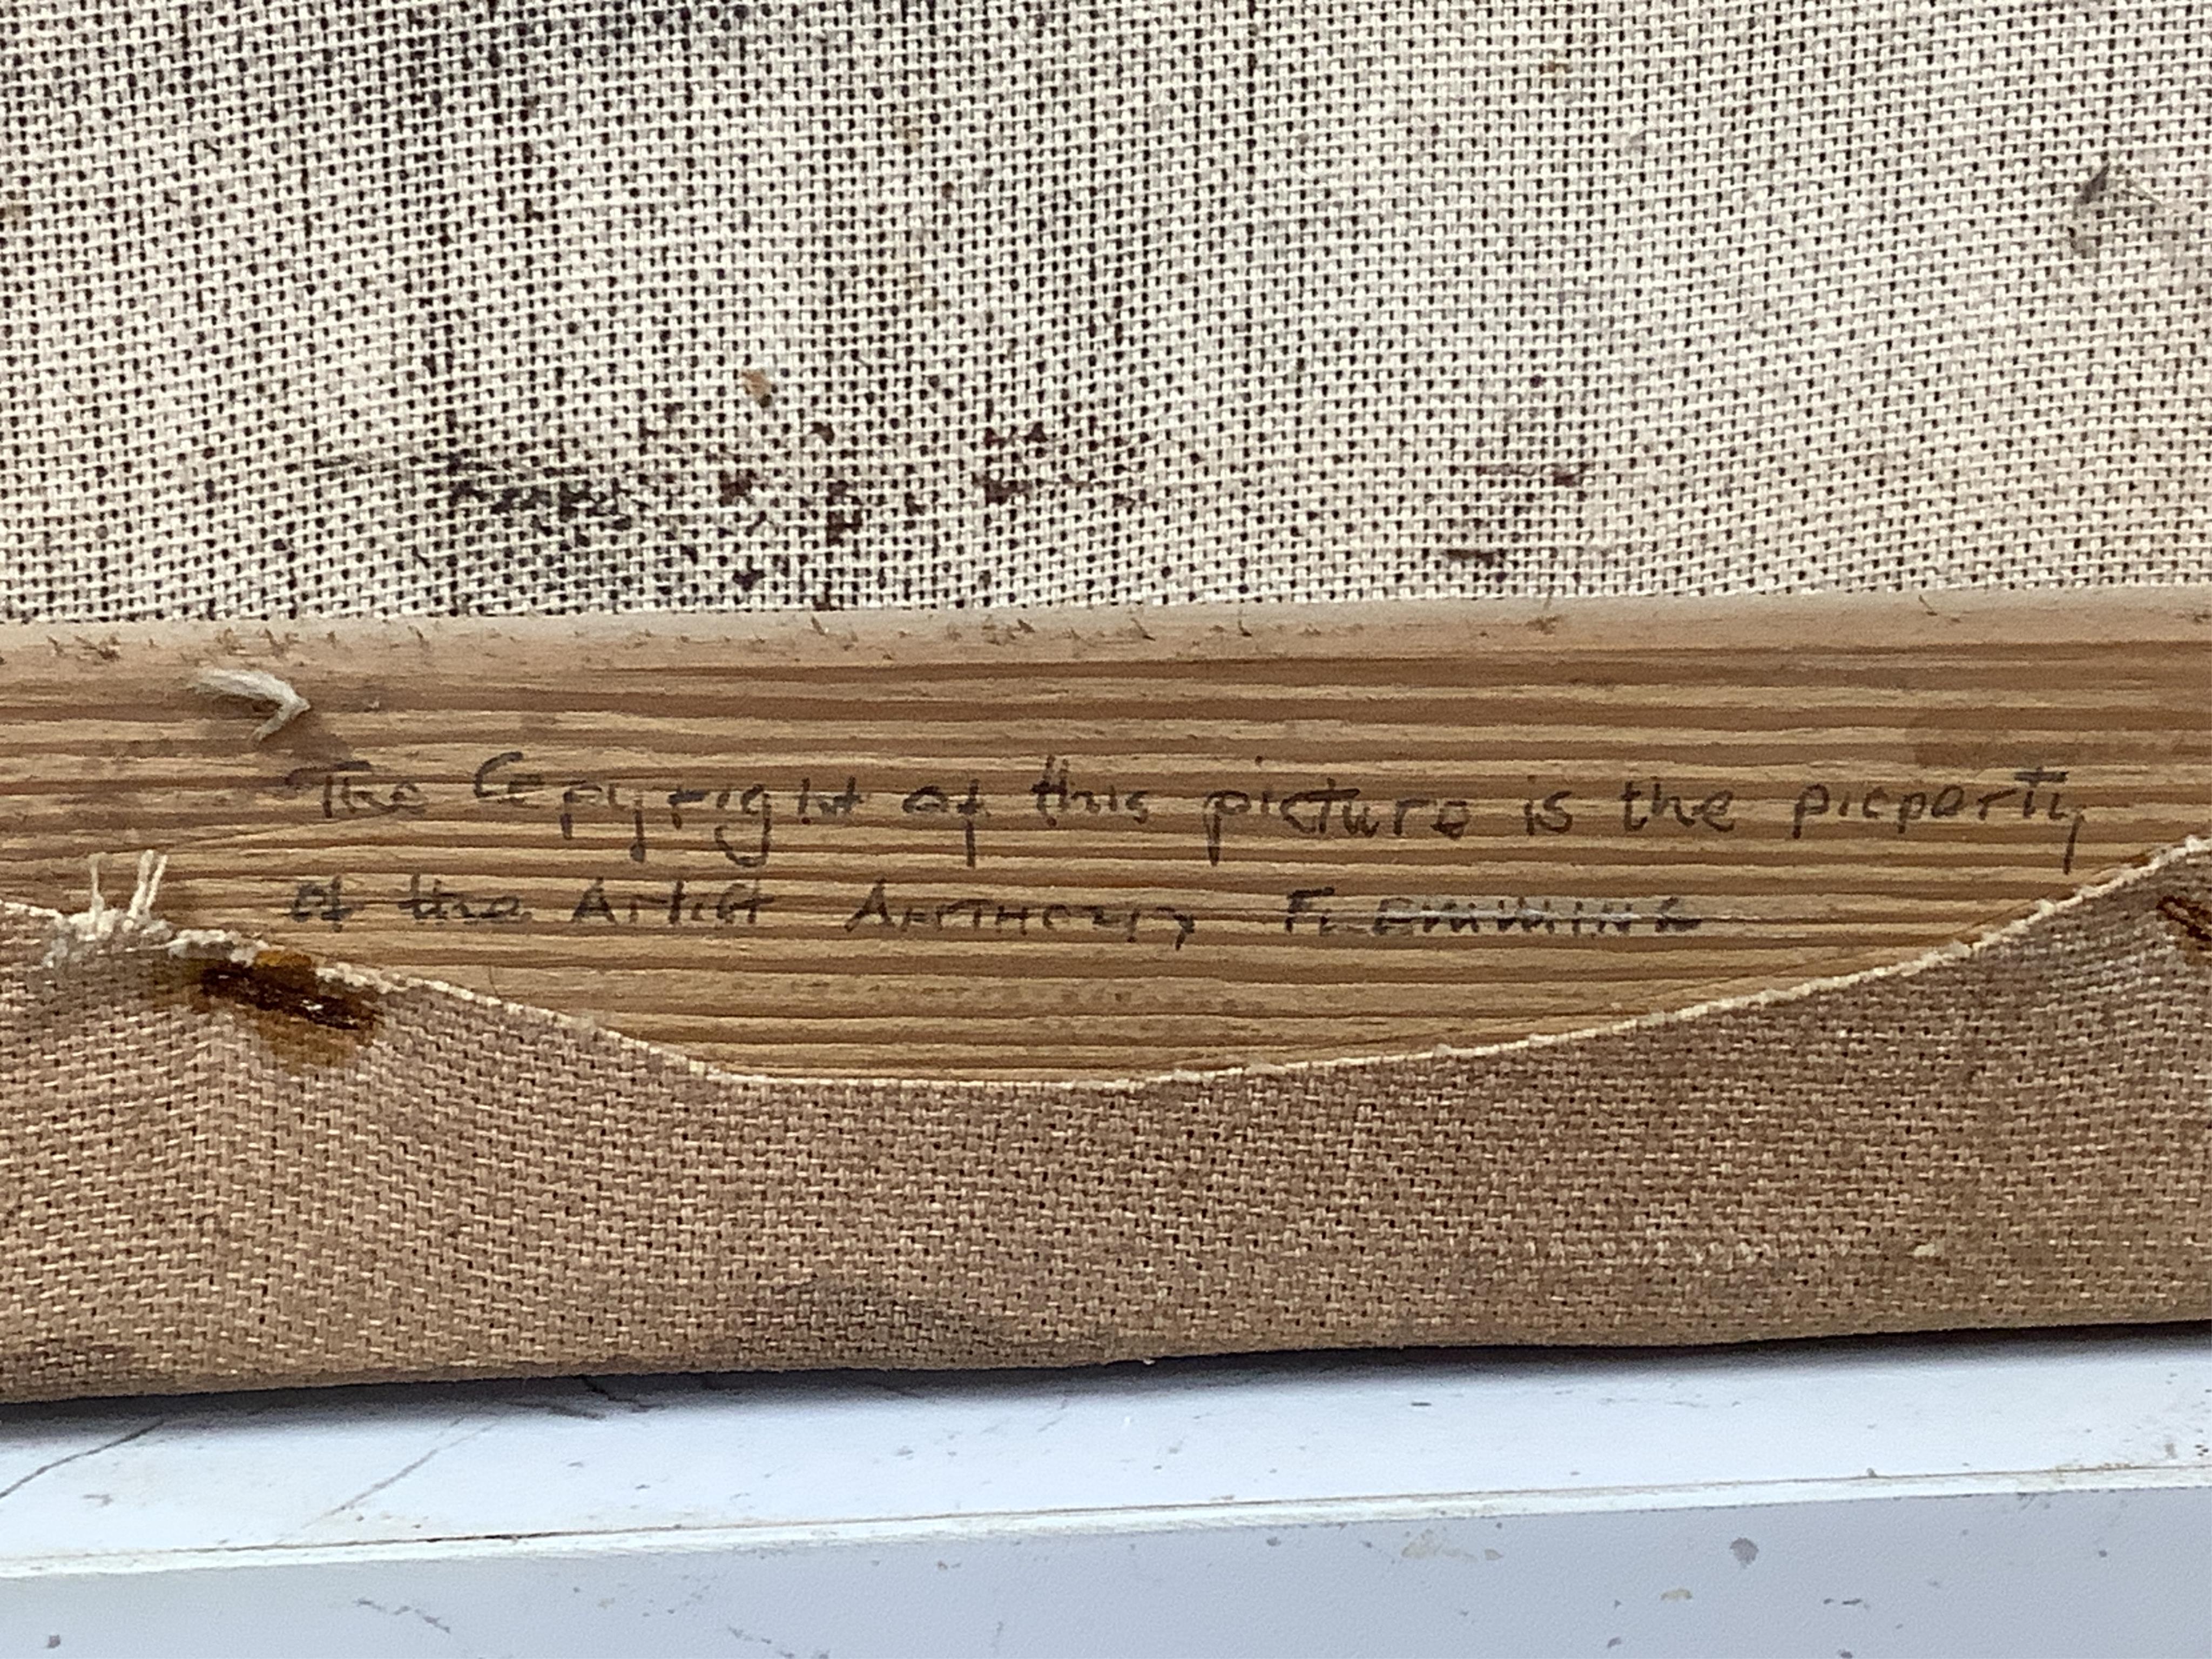 The Copyright of this picture is the property
of the Artist ANTHONY FLEMMING